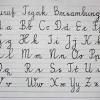 Huruf Tegak Bersambung
Aa Bb Cc Dd Ee Ff
Gg Hh Ii Jj Kk Ll
Mm Nn Oo Pp
Qq Rr Ss Tt Uu
Vv Ww Xx Yy Zz